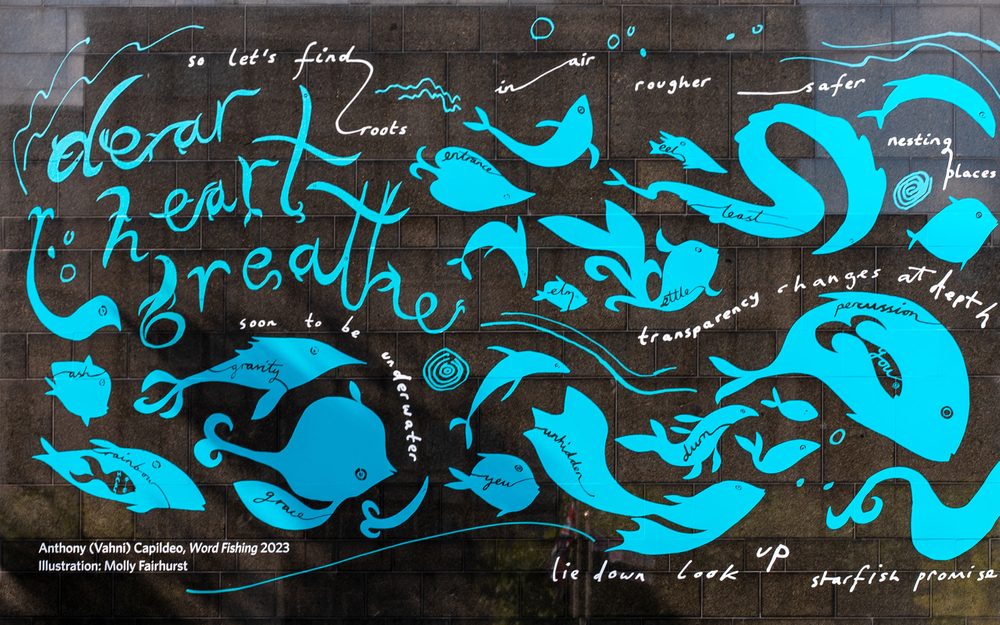 so let's find
roots
in air
rougher
safer
nesting
places
dear
heart
breathe
entrance
eel
least
elm
settle
transparency changes at depth
percussion
you
soon to be
underwater
ash
gravity
rainbow
grace
unhidden
yew
dun
lie down look up
starfish promise
Anthony (Vahni) Capildeo, Word Fishing 2023
Illustration: Molly Fairhurst